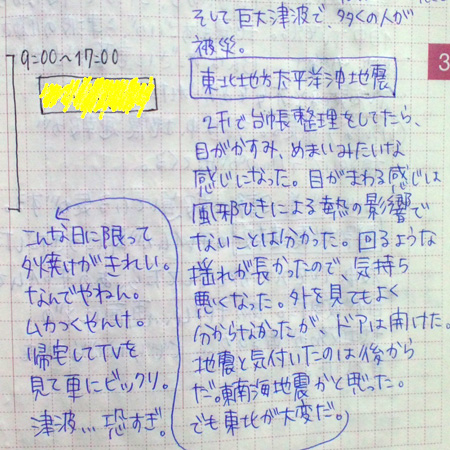 そして巨大津波で、多くの人が
被災。
3
9:00〜17:00
東北地方太平洋沖地震
2Fで台帳整理をしてたら、
目がかすみ、めまいみたいな
感じになった。目がまわる感じは
風邪ひきによる熱の影響で
ないことは分かった。回るような
揺れが長かったので、気持ち
悪くなった。外を見てもよく
分からなかったが、ドアは開けた。
地震と気付いたのは後から
だ。東南海地震かと思った。
でも東北が大変だ。
こんな日に限って
夕焼けがきれい。
なんでやねん。
ムカつくやんけ。
帰宅してTVを
見て更にビックリ。
津波…恐すぎ。